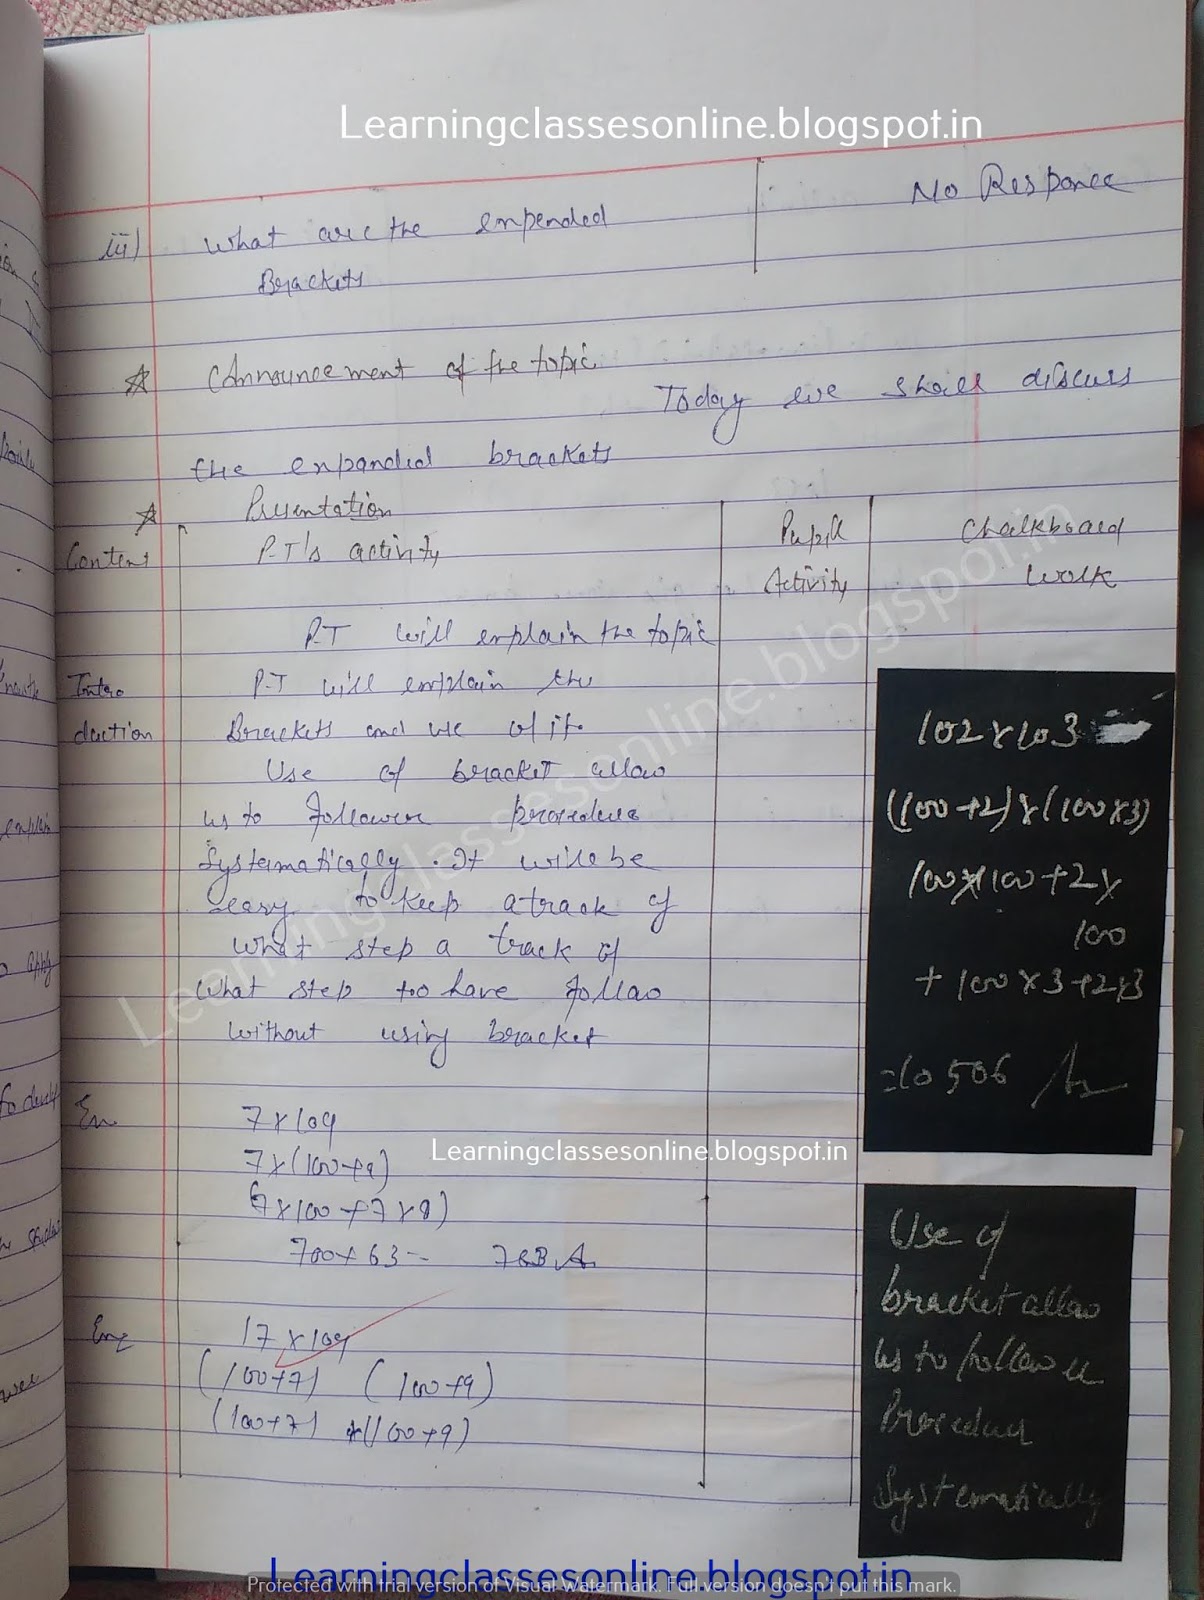 Learningclassesonline.blogspot.in
No Responce
iii) What are the expended
Brackets
Announcement of the topic
Today we shall discuss
the expanded brackets
Presentation
Content P.T's activity Pupil Activity Chalkboard Work
P.T will explain the topic
Intro P.T will explain the
duction Brackets and use of it
Use of bracket allow
us to procedure
Systematically. It will be
easy to keep a track of
what step a track of
what step to have follow
without using bracket
Ex 7×109
7×(100+9)
(7×100+7×9)
700+63- 763 A
17×109
(100+7) (100+9)
(100+7) ×(100+9)
102×103
(100+2)×(100×3)
100×100+2×
100
+100×3+2×3
=10506
Learningclassesonline.blogspot.in
Use of
bracket allow
us to
Systematically
Learningclassesonline.blogspot.in
Learningclassesonline.blogspot.in
Protected with trial version of Visual Watermark. Full version doesn't put this mark.